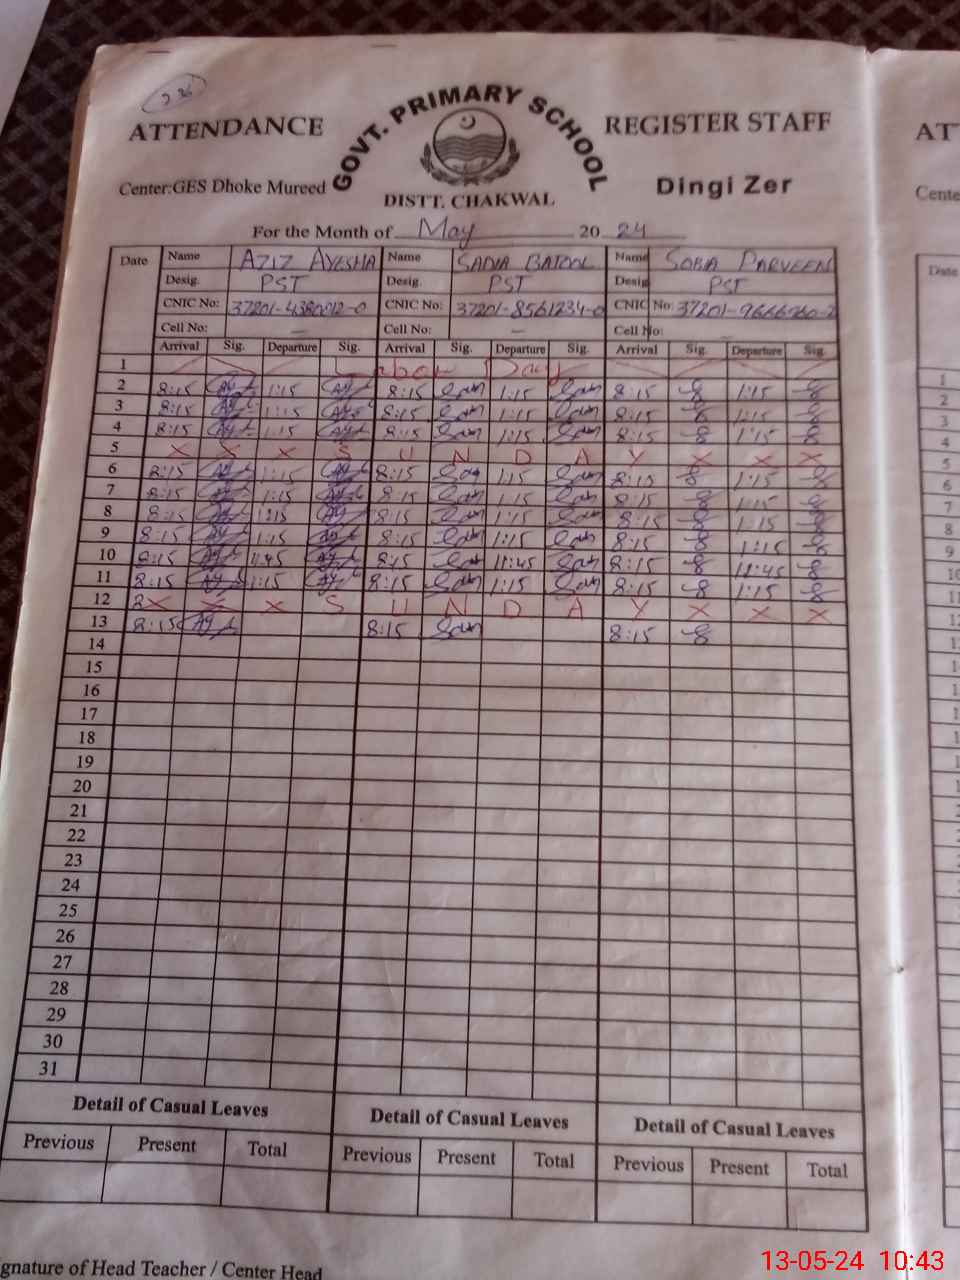 ATTENDANCE GOVT. PRIMARY SCHOOL REGISTER STAFF
Center:GES Dhoke Mureed DISTT. CHAKWAL Dingi Zer
For the Month of May 20 24
Date Name AZIZ AYESHA Name SADIA BATOOL Name SOBIA PARVEEN
Desig. PST Desig. PST Desig PST
CNIC No: 37201-4380012-0 CNIC No: 37201-8561234-0 CNIC No: 37201-9666960-2
Cell No: — Cell No: — Cell No:
Arrival Sig. Departure Sig. Arrival Sig. Departure Sig. Arrival Sig. Departure Sig.
1 Labour Day
2 8:15 1:15 8:15 1:15 8:15 1:15
3 8:15 1:15 8:15 1:15 8:15 1:15
4 8:15 1:15 8:15 1:15 8:15 1:15
5 X X X S U N D A Y X X X
6 8:15 1:15 8:15 1:15 8:15 1:15
7 8:15 1:15 8:15 1:15 8:15 1:15
8 8:15 1:15 8:15 1:15 8:15 1:15
9 8:15 1:15 8:15 1:15 8:15 1:15
10 8:15 11:45 8:15 11:45 8:15 11:45
11 8:15 1:15 8:15 1:15 8:15 1:15
12 X X X S U N D A Y X X X
13 8:15 8:15 8:15
14
15
16
17
18
19
20
21
22
23
24
25
26
27
28
29
30
31
Detail of Casual Leaves Detail of Casual Leaves Detail of Casual Leaves
Previous Present Total Previous Present Total Previous Present Total
gnature of Head Teacher / Center Head
13-05-24 10:43